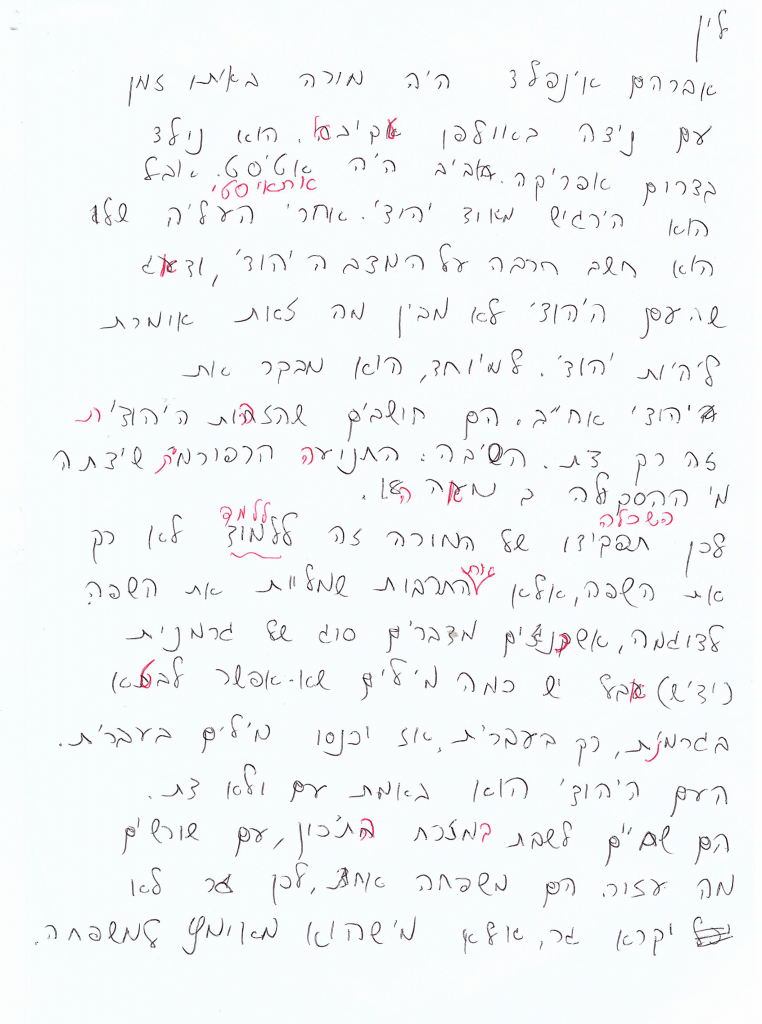 לין
אברהם אינפלד היה מורה באיתו זמן
עם ניצה באוולפן עקיבא. הוא נילד
בדרום אפריקה. אביב היה אטיסט. אבל
אתאיסטי
הוא הירגיש מאוד יהודי. אחרי העליה שלו
הוא חשב חרבה על המצב היהודי, ודאג
שהעם היהודי לא מבין מה זאת אומרת
ליהיות יהודי. למיוחד, הוא מבקר את
יהודי אח״ב. הם חושבים שהזהות היהודית
זה רק דת. הסיבה: התנועה הרפורמית שיצתה
מי ההסכלה ב מאה ה18.
השכלה
ללמד
לכן תפקידו של המורה זה ללמוד לא רק
את
את השפה, אלא התרבות שמליית את השפה.
לדוגמה, אשכנזים מדברים סוג של גרמנית
(ידיש) אבל יש כמה מילים שאי-אפשר לבטא
בגרמנית, רק בעברית, אז יכנסו מילים בעברית.
העם היהודי הוא באמת עם ולא דת.
הם שמיים לשבת במזרח התיכון, עם שורשים
מה עזור. הם משפחה אחת, לכן גר לא
יקרא גר, אלא מישהוא מאומץ למשפחה.